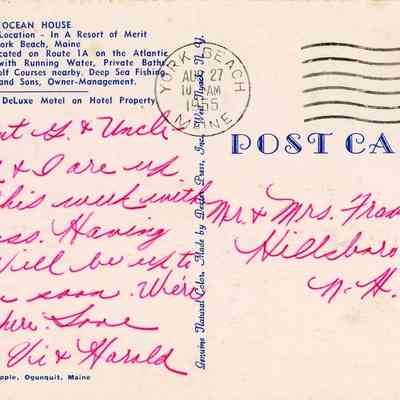 OCEAN HOUSE
Location - In A Resort of Merit
York Beach, Maine
cated on Route 1A on the Atlantic
with Running Water, Private Baths
lf Courses nearby. Deep Sea Fishing
and Sons, Owner-Management.
DeLuxe Motel on Hotel Property
YORK BEACH
AUG 27
10 AM
1955
MAINE
POST CA
nt G. & Uncle
& I are up
this week with
ss. Having
Will be up to
soon. We're
here. Love
Vi & Harold
pple, Ogunquit, Maine
Genuine Natural Color, Made by Dexter Press, Inc., West Nyack, N. Y.
Mr. & Mrs. Fran
Hillsboro
N. H.